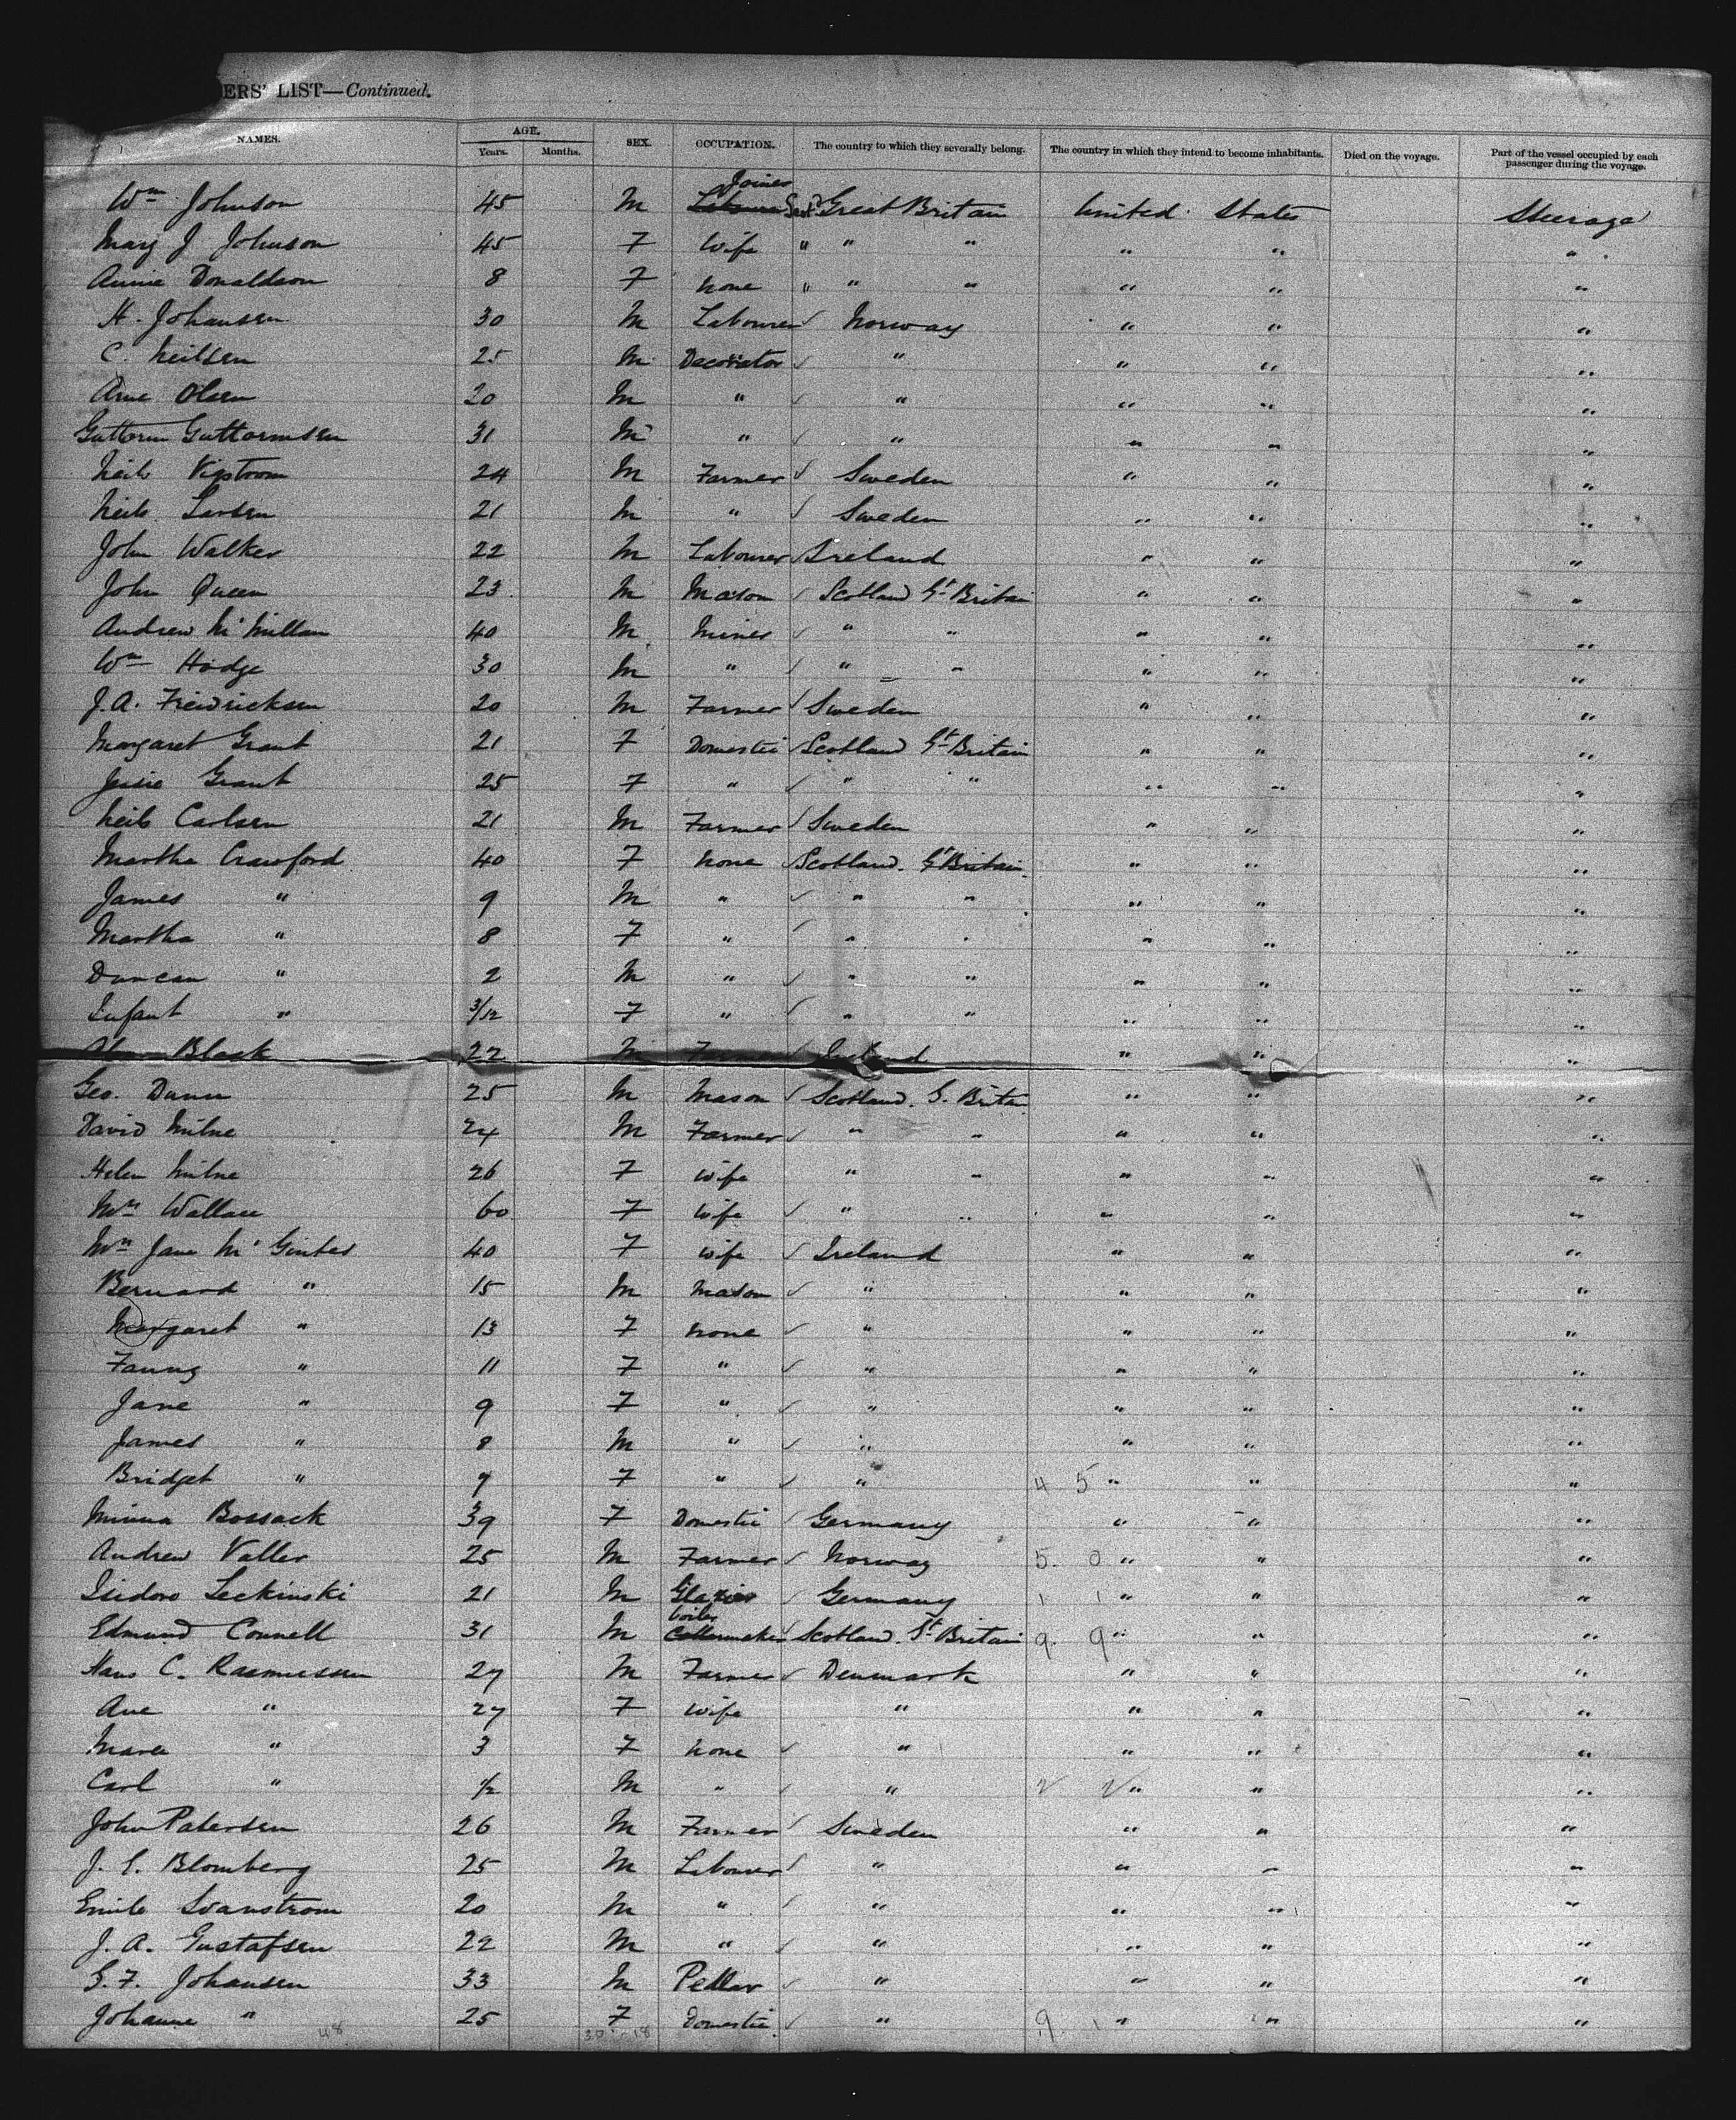 ERS' LIST—Continued.
NAMES. AGE. Years. Months. SEX. OCCUPATION. The country to which they severally belong. The country in which they intend to become inhabitants. Died on the voyage. Part of the vessel occupied by each passenger during the voyage.
Joiner
Wm Johnson 45 M Labourer Great Britain United States Steerage
Mary J Johnson 45 F Wife " " " " " "
Annie Donaldson 8 F None " " " " " "
H. Johansen 30 M Labourer Norway " " "
C. Neilsen 25 M Decorator " " " "
Arne Olsen 20 M " " " " "
Guttorm Guttormsen 31 M " " " " "
Neils 24 M Farmer Sweden " " "
Neils Larsen 21 M " Sweden " " "
John Walker 22 M Labourer Ireland " " "
John Queen 23 M Mason Scotland Gt Britain " " "
Andrew McMillan 40 M Miner " " " " "
Wm Hodge 30 M " " " " " "
J. A. Freidricksen 20 M Farmer Sweden " " "
Margaret Grant 21 F Domestic Scotland Gt Britain " " "
Jessie Grant 25 F " " " " " "
Neils Carlsen 21 M Farmer Sweden " " "
Martha Crawford 40 F None Scotland. Gt Britain " " "
James " 9 M " " " " " "
Martha " 8 F " " " " " "
Duncan " 2 M " " " " " "
Infant " 3/12 F " " " " " "
Black 22 M Farmer Ireland " " "
Geo. Dunn 25 M Mason Scotland. G. Britain " " "
David Milne 24 M Farmer " " " " "
Helen Milne 26 F Wife " " " " "
Mrs Wallace 60 F Wife " " " " "
Mrs Jane Mc 40 F Wife Ireland " " "
Bernard " 15 M Mason " " " "
Margaret " 13 F None " " " "
Fanny " 11 F " " " " "
Jane " 9 F " " " " "
James " 8 M " " " " "
Bridget " 7 F " " 4 5 " " "
Minna Bossack 39 F Domestic Germany " " "
Andrew Valler 25 M Farmer Norway 5. 0 " " "
Isidore Leckinski 21 M Glazier Germany 1 1 " " "
boiler
Edmund Connell 31 M Scotland. Gt Britain 9. 9 " " "
Hans C. Rasmussen 27 M Farmer Denmark " " "
Ane " 27 F Wife " " " "
Mare " 3 F None " " " "
Carl " 1/2 M " " 2 2 " " "
John Patersen 26 M Farmer Sweden " " "
J. E. Blomberg 25 M Labourer " " " "
Emile Svanstrom 20 M " " " " "
J. A. Gustafsen 22 M " " " " "
G. F. Johansen 33 M Pedlar " " " "
Johanne " 25 F Domestic " 9 1 " " "
48 30 18